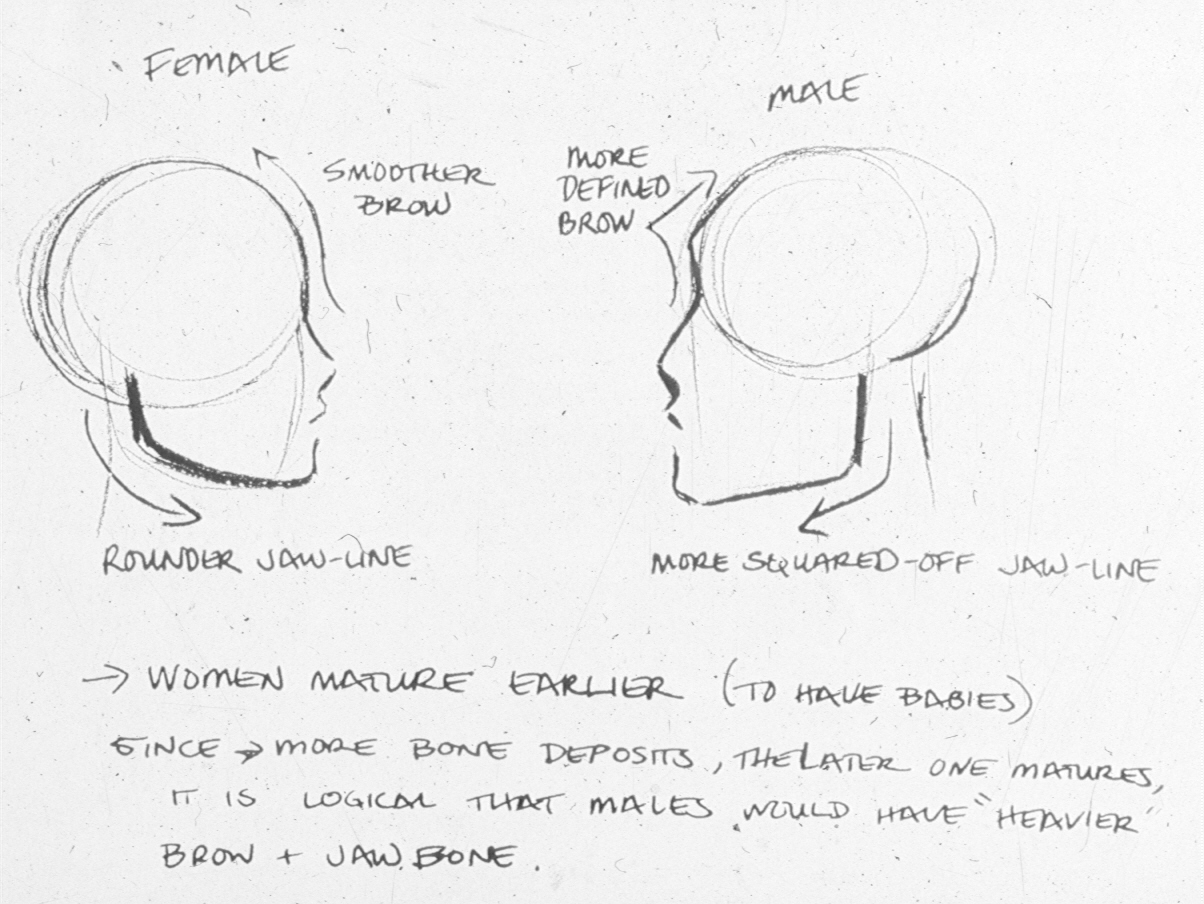 FEMALE
SMOOTHER
BROW
ROUNDER JAW-LINE
MALE
MORE
DEFINED
BROW
MORE SQUARED-OFF JAW-LINE
→ WOMEN MATURE EARLIER (TO HAVE BABIES)
SINCE → MORE BONE DEPOSITS, THE LATER ONE MATURES,
IT IS LOGICAL THAT MALES WOULD HAVE "HEAVIER"
BROW + JAW BONE.